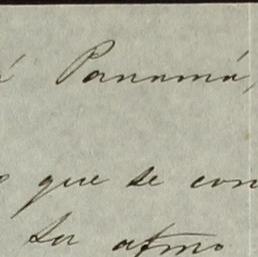 á Panamá,
que se con
Su atmo